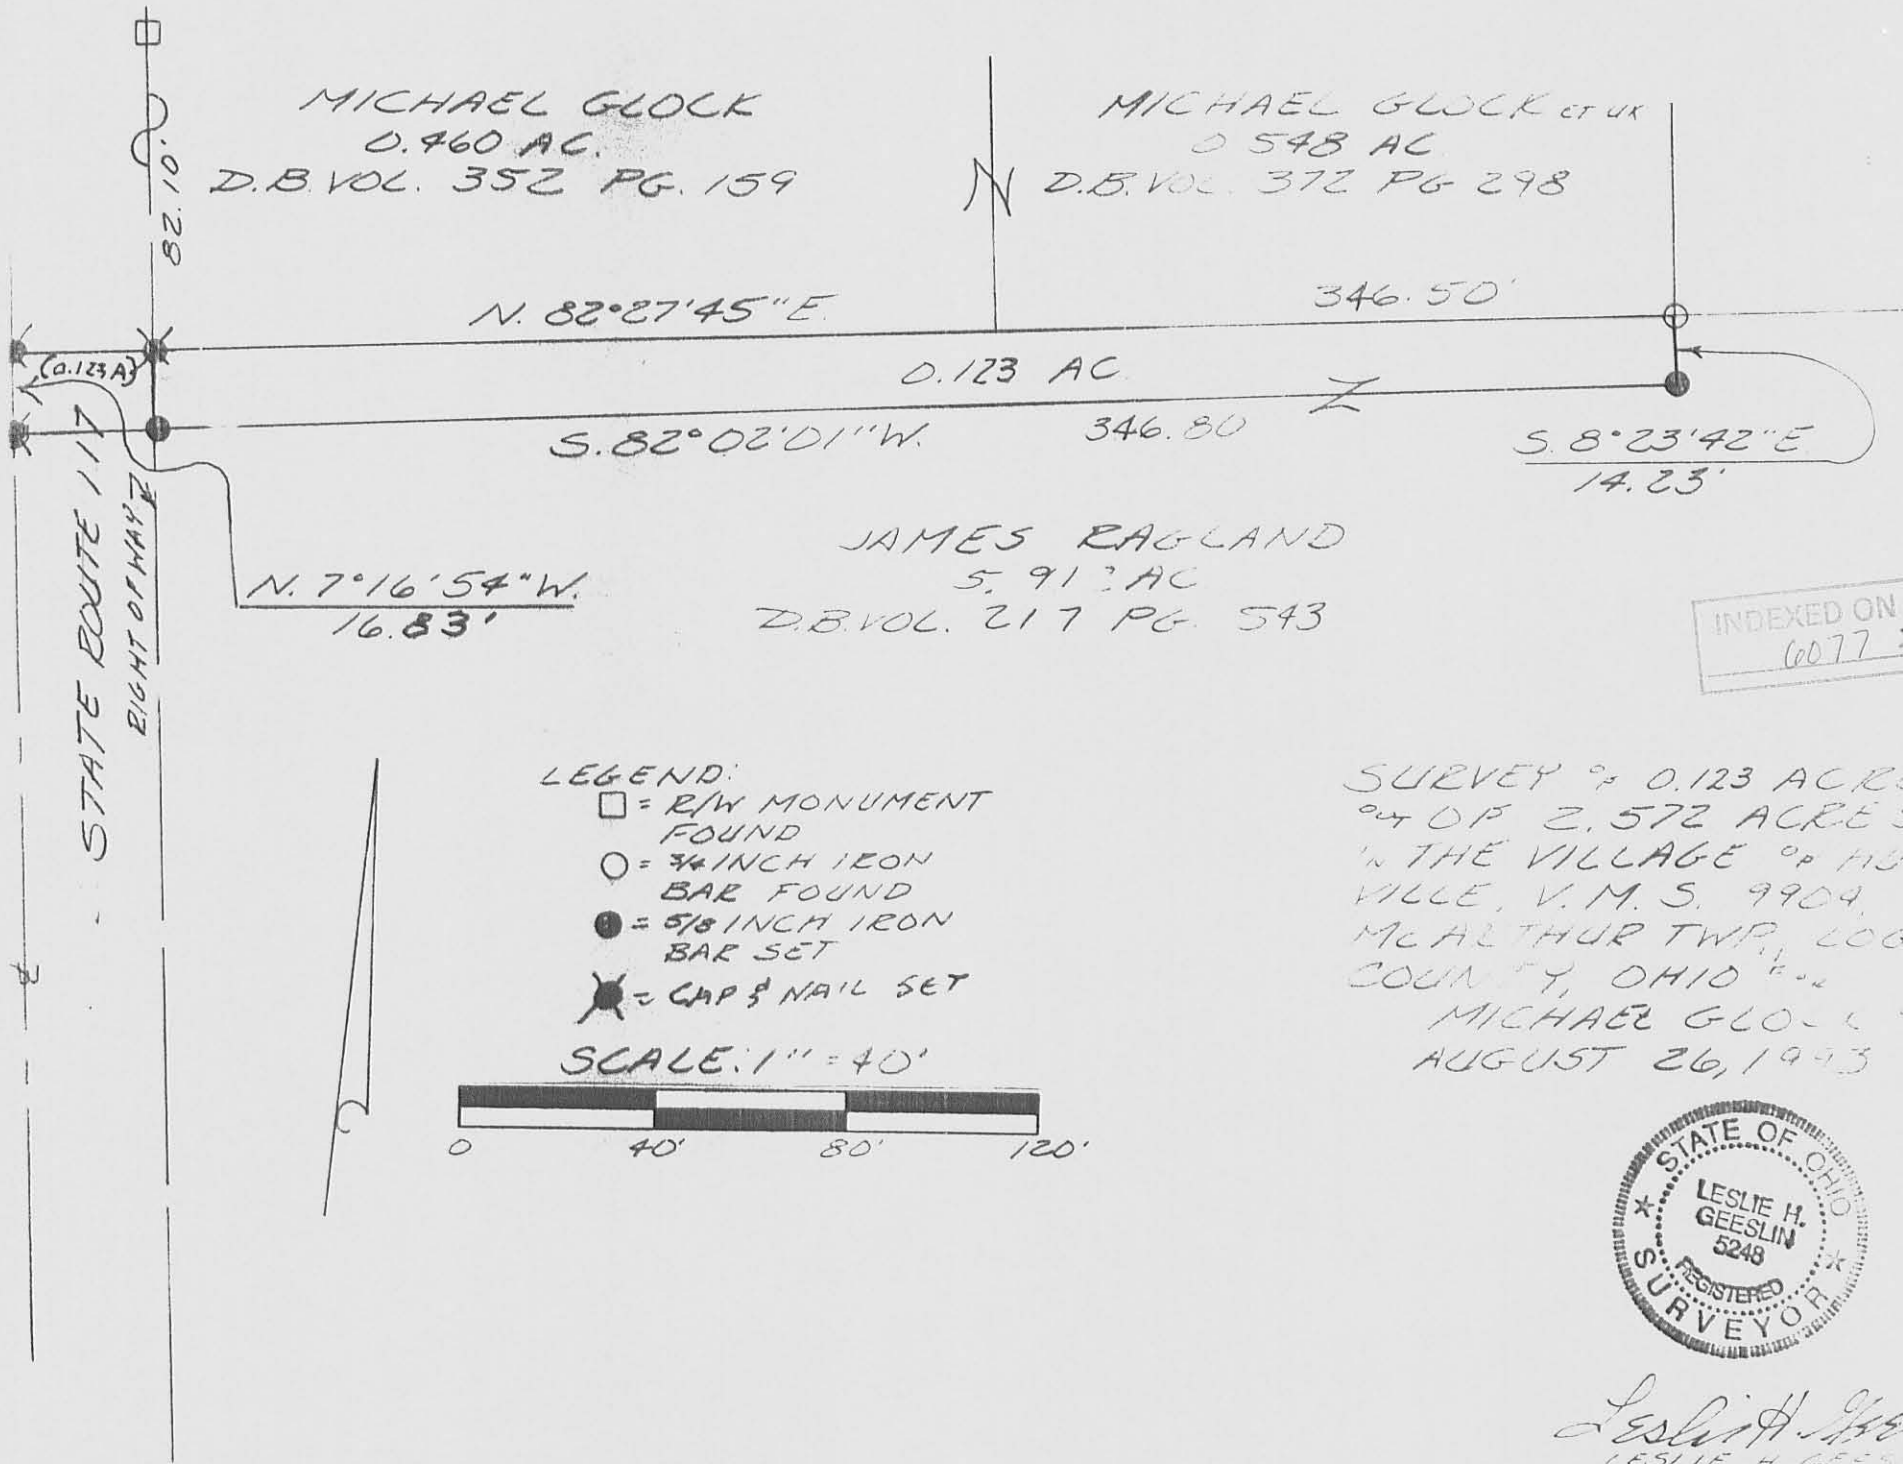 MICHAEL GLOCK
0.460 AC.
D.B. VOL. 352 PG. 159
MICHAEL GLOCK et ux
0.548 AC
D.B. VOL. 372 PG 298
82.10'
N. 82°27'45"E.
346.50'
(0.123 A)
0.123 AC
S. 82°02'01"W.
346.80
S. 8°23'42"E
14.23'
STATE ROUTE 117
RIGHT OF WAY
N. 7°16'54"W.
16.83'
JAMES RAGLAND
AC
D.B. VOL. 217 PG. 543
INDEXED ON
6077
LEGEND:
□ = R/W MONUMENT
FOUND
○ = 3/4 INCH IRON
BAR FOUND
● = 5/8 INCH IRON
BAR SET
= CAP & NAIL SET
SCALE: 1" = 40'
0 40' 80' 120'
SURVEY OF 0.123 ACRE
OUT OF 2.572 ACRES
IN THE VILLAGE OF
VILLE, V. M. S. 9904,
McARTHUR TWP.,
COUNTY, OHIO FOR
MICHAEL
AUGUST 26, 1993
STATE OF OHIO
LESLIE H.
GEESLIN
5248
REGISTERED
SURVEYOR
Leslie H.
LESLIE H.